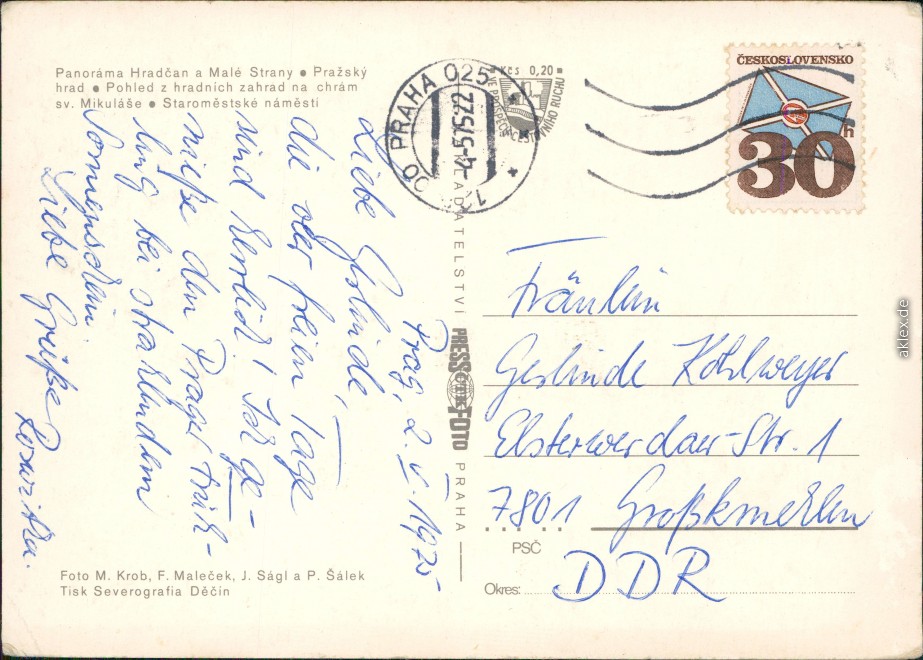 Panoráma Hradčan a Malé Strany ● Pražský
hrad ● Pohled z hradních zahrad na chrám
sv. Mikuláše ● Staroměstské náměstí
Prag, 2. V. 1975
Liebe Gelinde,
die oder freien Tage
sind herrlich! Ich ge-
nieße den Prager Früh-
ling bei strahlendem
Sonnenschein.
Liebe Grüße
Roswitha.
Foto M. Krob, F. Maleček, J. Ságl a P. Šálek
Tisk Severografia Děčín
PRAHA 025
-4.5.75-22
Kčs 0,20
VE PROSPĚCH CESTOVNÍHO RUCHU
ČESKOSLOVENSKO
30 h
VYDAVATELSTVÍ PRESSFOTO PRAHA
ČTK
Fräulein
Geslinde Kohlweyer
Elsterwerdaer-Str. 1
7801 Großkmehlen
PSČ
DDR
Okres:
aklex.de